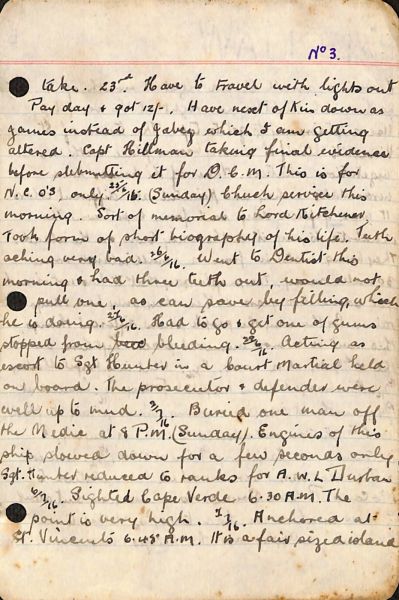 No 3.
take. 23rd. Have to travel with lights out
Pay day & got 12/-. Have next of kin down as
games instead of gabey which I am getting
altered. Capt Hillman taking final evidence
before submitting it for D.C.M. This is for
N.C.O's, only. 25/6/16. (Sunday) Chuch service this
morning. Sort of memorial to Lord Kitchener,
Took form of short biography of his life. Teeth
aching very bad. 26/6/16. Went to Dentist this
morning & had three teeth out, would not
pull one, as can save by filling, which
he is doing. 27/6/16. Had to go & get one of gums
stopped from bleeding. 28/6/16. Acting as
escort to Sgt Hunter in a Court Martial held
on board. The prosecutor & defender were
well up to mud. 2/7/16. Buried one man off
the Medic at 8 P.M. (Sunday). Engines of this
ship slowed down for a few seconds only
Sgt. Hunter reduced to ranks for A.W.L Durban
6/7/16. Sighted Cape Verde 6.30 A.M. The
point is very high. 7/16. Anchored at
St. Vincents 6.45 A.M. It is a fair sized island